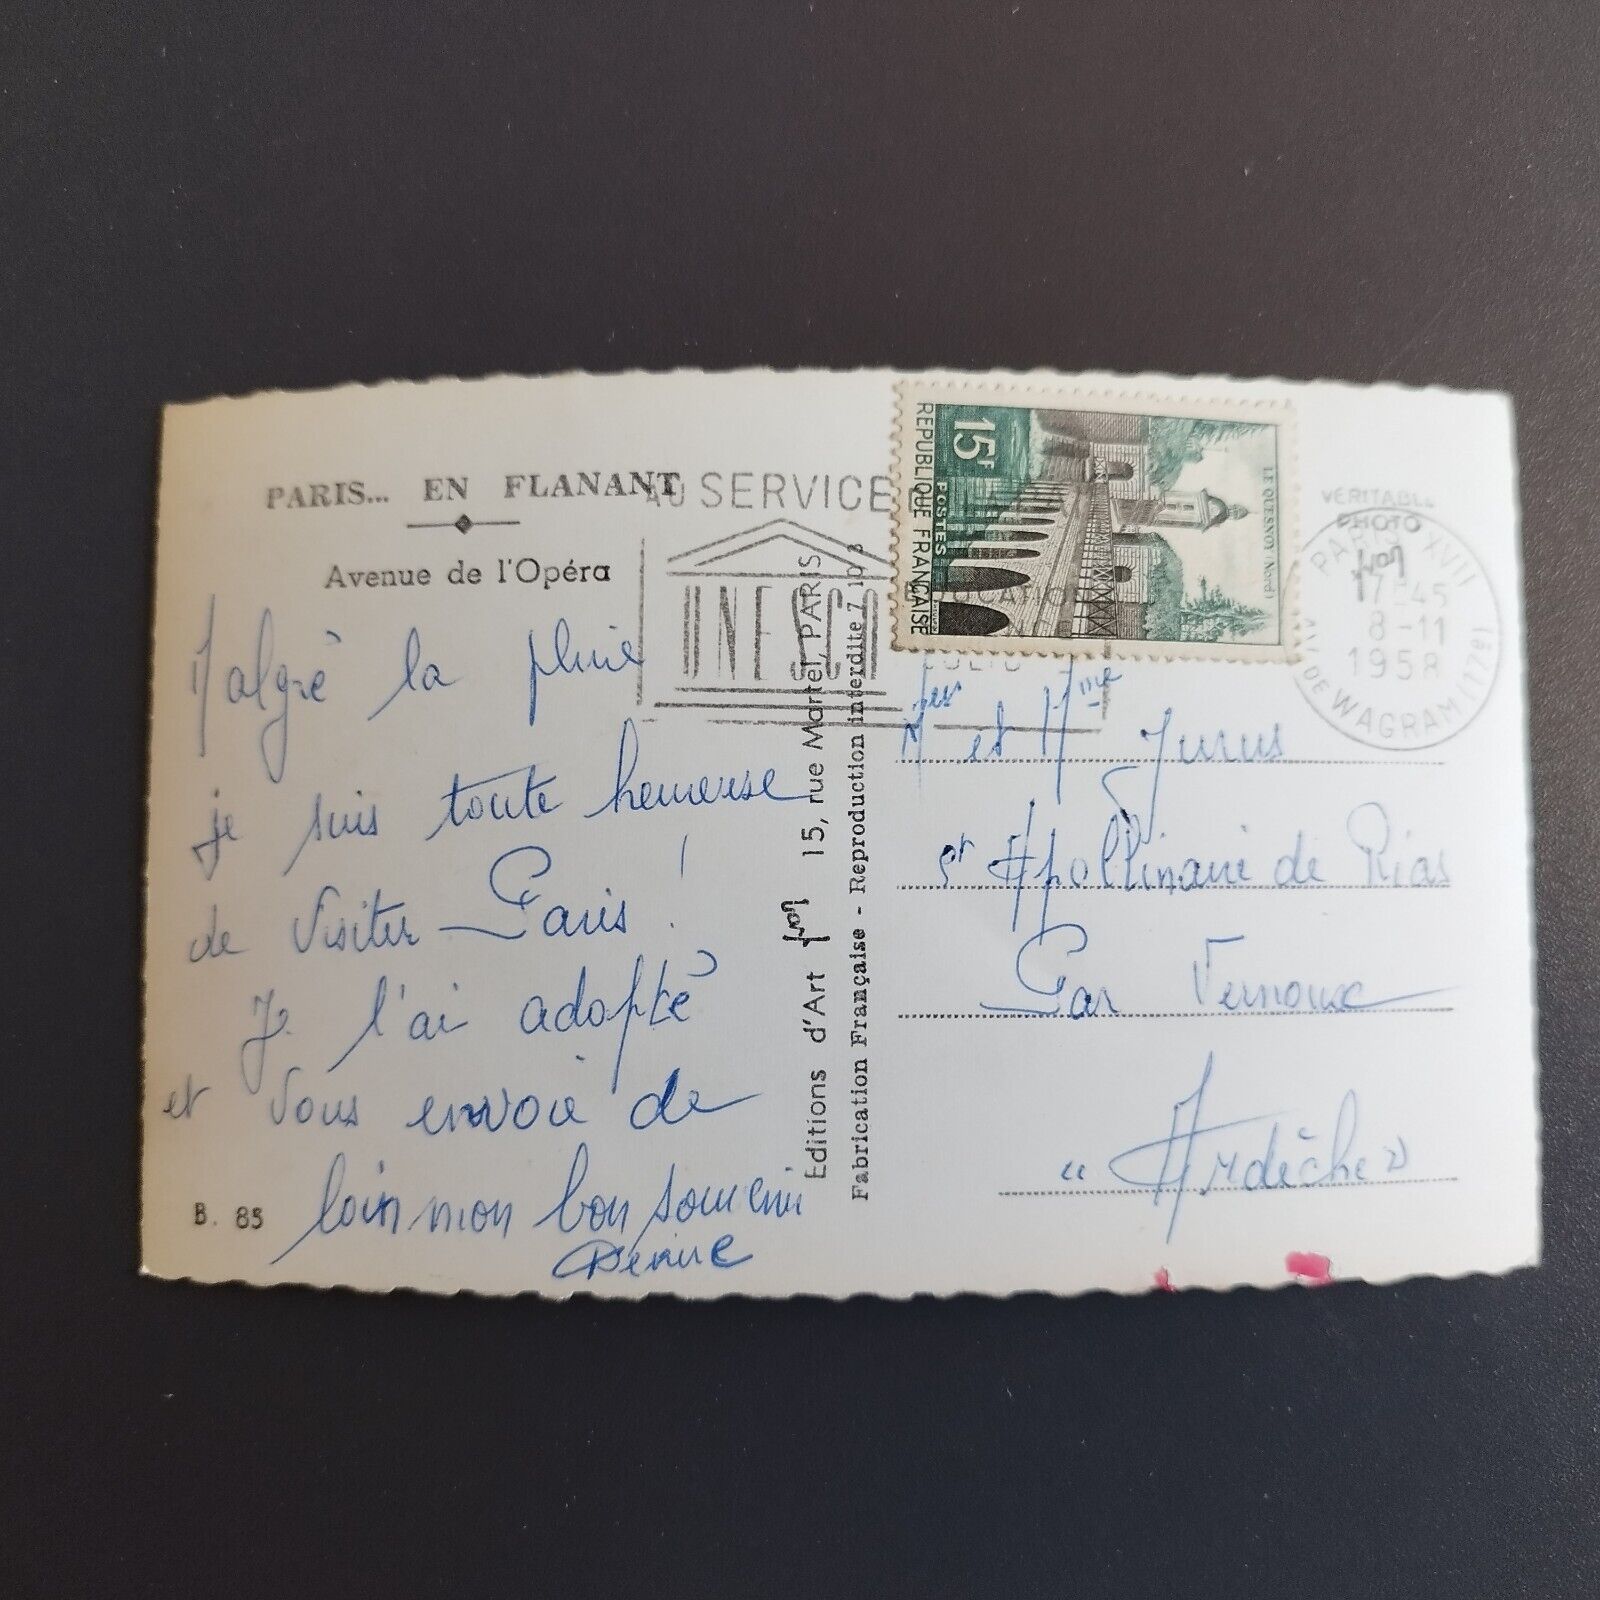 PARIS... EN FLANANT
Avenue de l'Opéra
Malgré la pluie
je suis toute heureuse
de visiter Paris !
Je l'ai adopté
et vous envoie de
loin mon bon souvenir
Denise
B. 85
AU SERVICE
UNESCO
Editions d'Art yvon 15, rue Martel, PARIS
Fabrication Française - Reproduction interdite 7 lp 3
REPUBLIQUE FRANÇAISE
POSTES
15F
LE QUESNOY (Nord)
VÉRITABLE
PHOTO
yvon
PARIS XVII
17-45
8-11
1958
AV. DE WAGRAM (17e)
et Mme
St Apollinaire de Rias
Par Vernoux
"Ardèche"